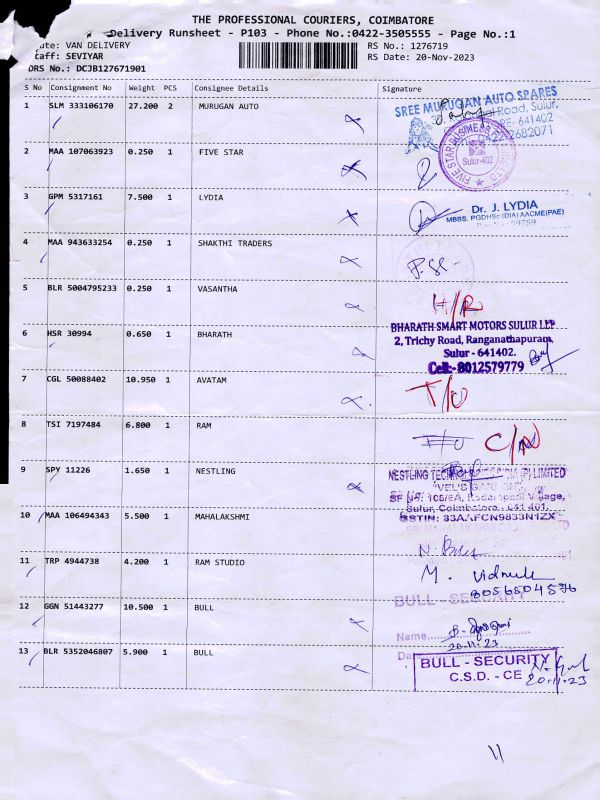 THE PROFESSIONAL COURIERS, COIMBATORE
Delivery Runsheet - P103 - Phone No.:0422-3505555 - Page No.:1
VAN DELIVERY RS No.: 1276719
SEVIYAR RS Date: 20-Nov-2023
DRS No.: DCJB127671901
S No Consignment No Weight PCS Consignee Details Signature
1 SLM 333106170 27.200 2 MURUGAN AUTO
SREE MURUGAN AUTO SPARES
Road, Sulur,
641402
2682071
2 MAA 107063923 0.250 1 FIVE STAR
FIVE STAR BUSINESS
Sulur-402
3 GPM 5317161 7.500 1 LYDIA
Dr. J. LYDIA
MBBS. PGDHSc (DIA) AACME(PAE)
4 MAA 943633254 0.250 1 SHAKTHI TRADERS
5 BLR 5004795233 0.250 1 VASANTHA
H/R
6 HSR 30994 0.650 1 BHARATH
BHARATH SMART MOTORS SULUR LLP
2, Trichy Road, Ranganathapuram,
Sulur - 641402.
Cell:- 8012579779
7 CGL 50088402 10.950 1 AVATAM
T/O
8 TSI 7197484 6.800 1 RAM
C/N
9 SPY 11226 1.650 1 NESTLING
NESTLING (P) LIMITED
Village,
Sulur, Coimbatore - 641 401.
GSTIN: 33AAFCN9833N1ZX
10 MAA 106494343 5.500 1 MAHALAKSHMI
11 TRP 4944738 4.200 1 RAM STUDIO
M.
12 GGN 51443277 10.500 1 BULL
BULL - SECURITY
Name
20-11-23
13 BLR 5352046807 5.900 1 BULL
BULL - SECURITY
C.S.D. - CE
20-11-23
11